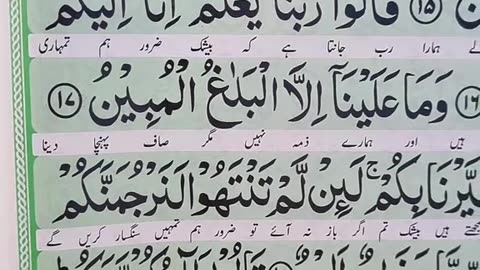 ۝۱۵ قَالُوْا رَبُّنَا يَعْلَمُ اِنَّاۤ اِلَيْكُمْ
ہمارا رب جانتا ہے کہ بیشک ضرور ہم تمہاری
۝۱۶ وَمَا عَلَيْنَاۤ اِلَّا الْبَلٰغُ الْمُبِيْنُ ۝۱۷
ہیں اور ہمارے ذمہ نہیں مگر صاف پہنچا دینا
تَطَيَّرْنَا بِكُمْ ۚ لَىِٕنْ لَّمْ تَنْتَهُوْا لَنَرْجُمَنَّكُمْ
سمجھتے ہیں بیشک تم اگر باز نہ آئے تو ضرور ہم تمہیں سنگسار کریں گے